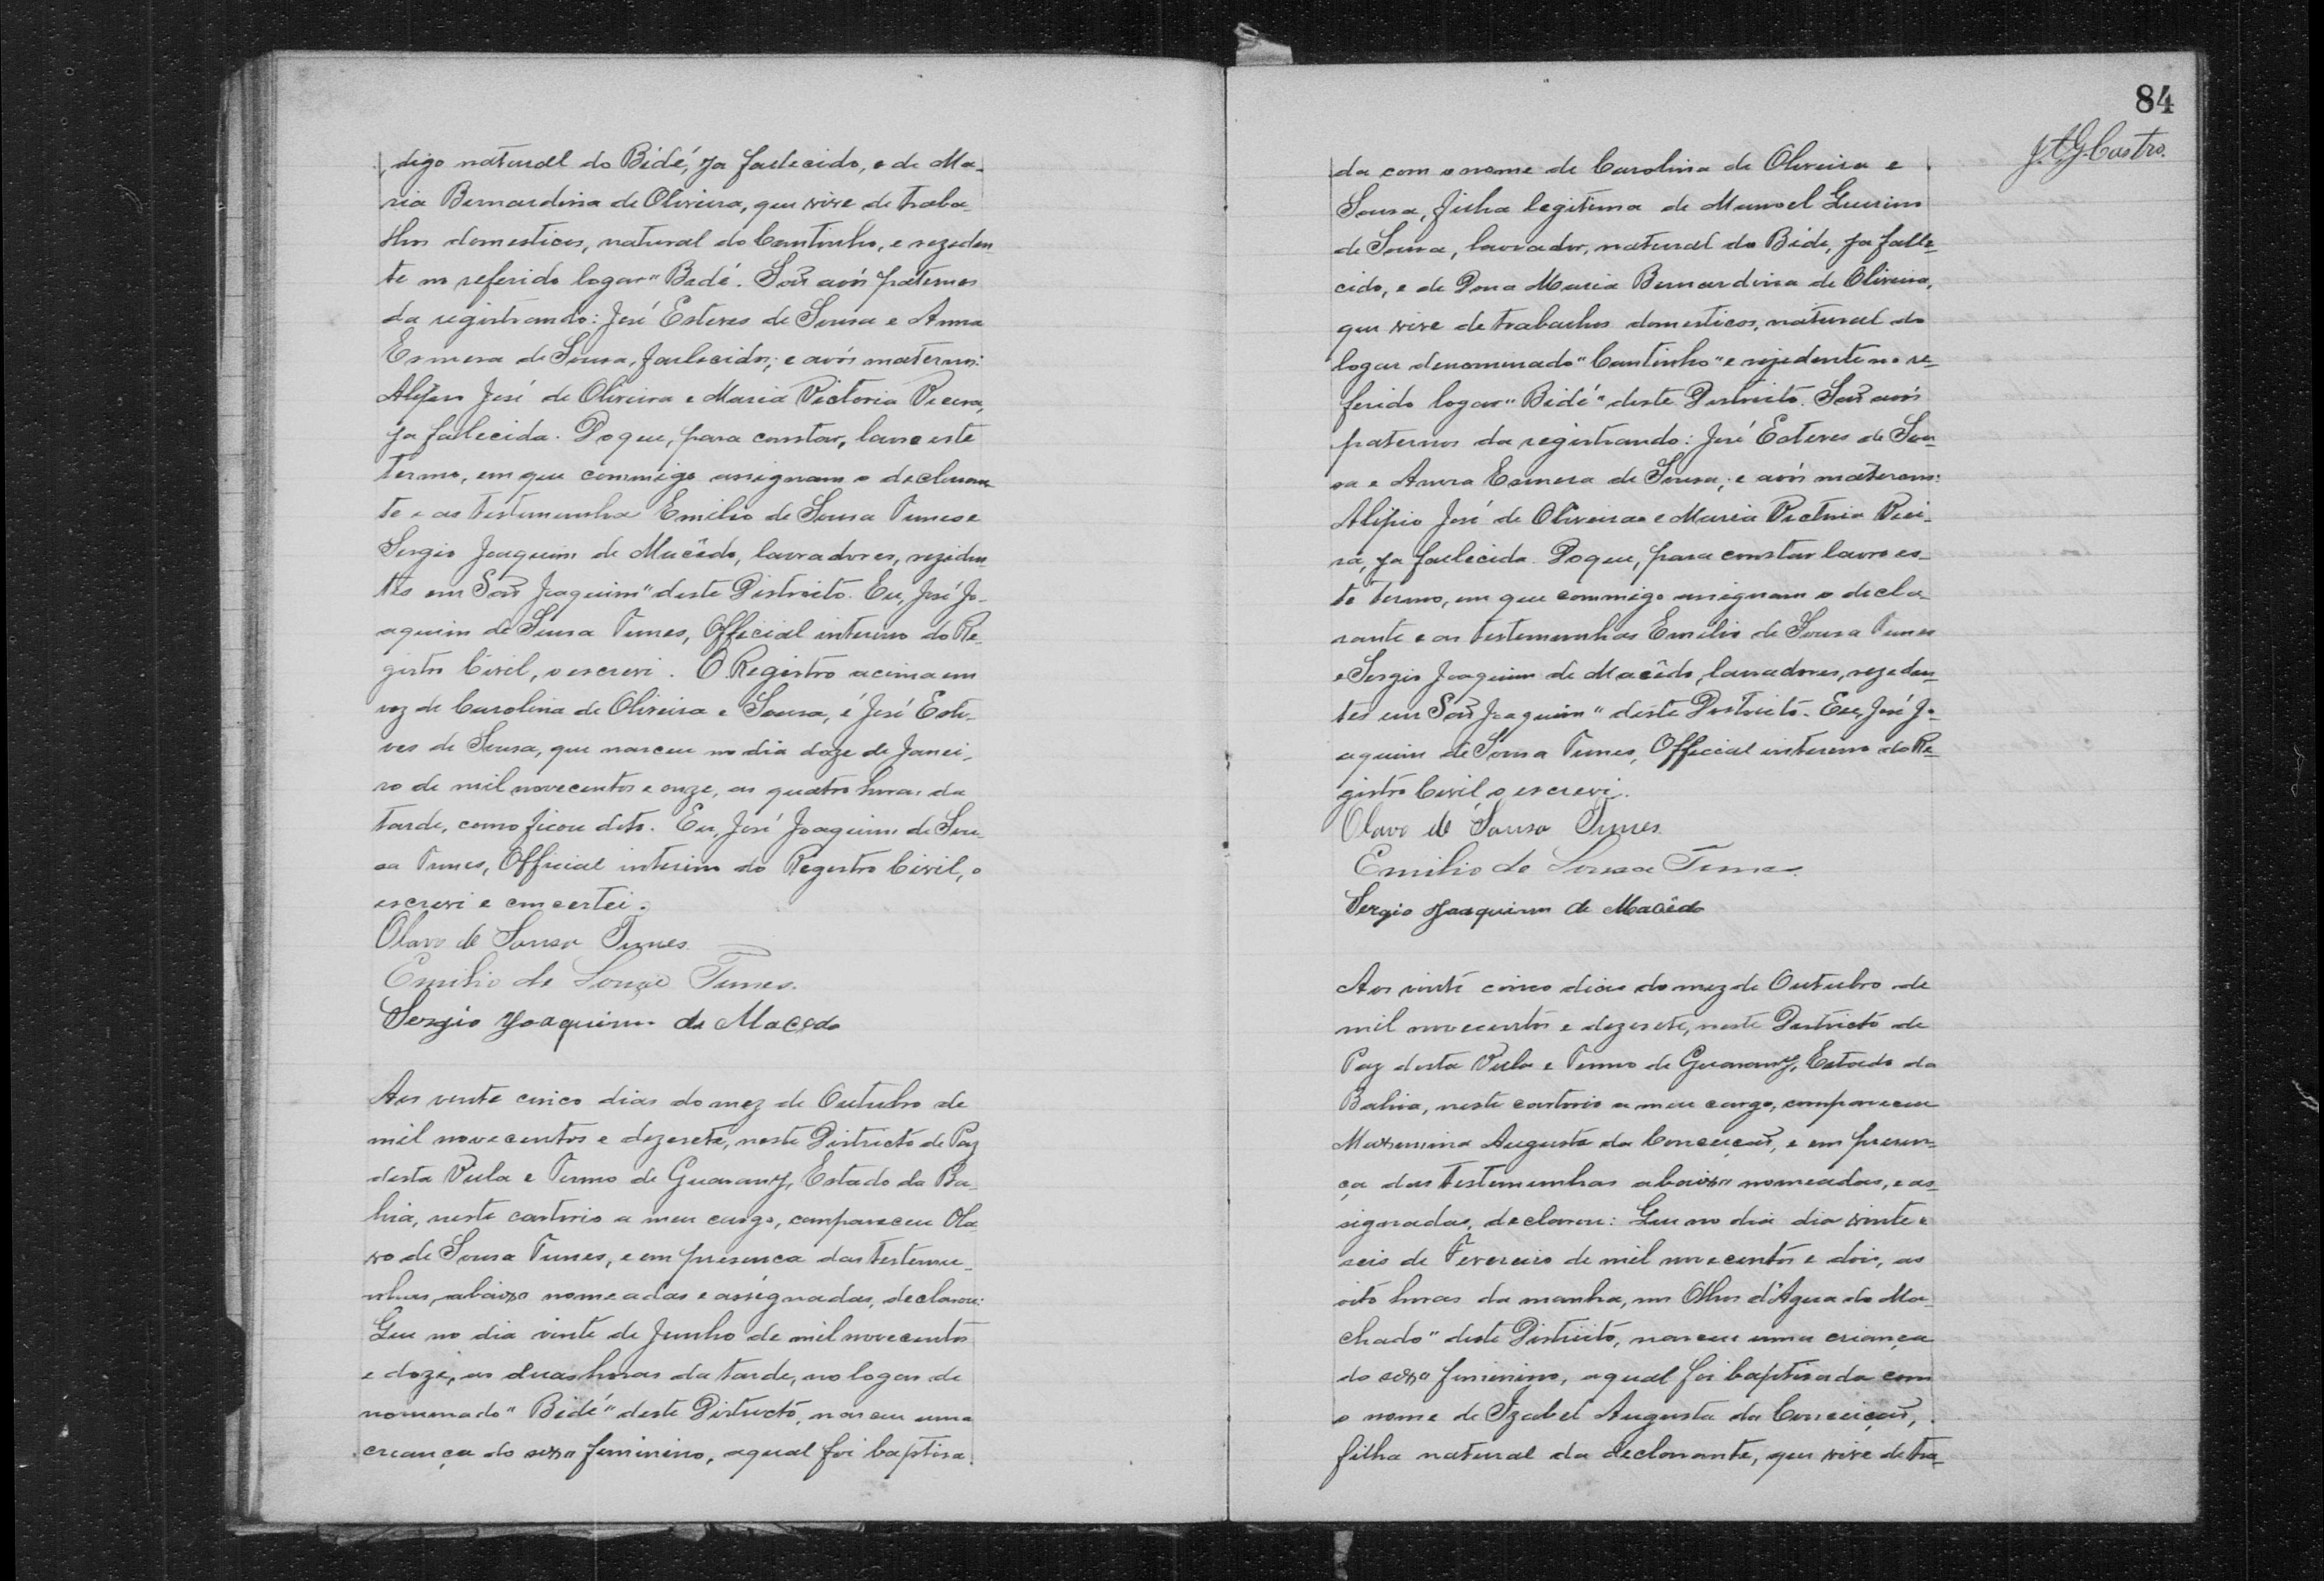 digo natural do Bidé, ja fallecido, e de Ma-
ria Bernardina de Oliveira, que vive de traba-
lhos domesticos, natural do Cantinho, e reziden-
te no referido logar "Bedé. Sao avós paternos
da registrando: José Esteves de Sousa e Anna
Esmera de Sousa, fallecidos; e avós maternos:
Alipio José de Oliveira e Maria Victoria Vieira,
ja fallecida. Do que, para constar, lavro este
termo, em que commigo assignam o declaran-
te e as testemunha Emilio de Sousa Tunes e
Sergio Joaquim de Macêdo, lavradores, reziden-
tes em Sao Joaquim" deste Districto. Eu, José Jo-
aquim de Sousa Tunes, Official interino do Re-
gistro Civil, o escrevi. O Registro acima em
vez de Carolina de Oliveira e Sousa, é José Este-
ves de Sousa, que nasceu no dia doze de Janei-
ro de mil novecentos e onze, as quatro horas da
tarde, como ficou dito. Eu, José Joaquim de Sou-
sa Tunes, Official interino do Registro Civil, o
escrevi e concertei.
Olavo de Sousa Tunes
Emilio de Souza Tunes.
Sergio Joaquim de Macedo
Aos vinte cinco dias do mez de Outubro de
mil novecentos e dezesete, neste Districto de Paz
desta Villa e Termo de Guarany, Estado da Ba-
hia, neste cartorio a meu cargo, compareceu Ola-
vo de Sousa Tunes, e em presença das testemu-
nhas, abaixo nomeadas e assignadas, declarou:
Que no dia vinte de Junho de mil novecentos
e doze, as duas horas da tarde, no logar de
nominado "Bidé" deste Districto, nasceu uma
creança do sexo feminino, a qual foi baptisa-
84
J.A.G. Castro.
da com o nome de Carolina de Oliveira e
Sousa, filha legitima de Manoel
de Sousa, lavrador, natural do Bidé, ja falle-
cido, e de Dona Maria Bernardina de Oliveira,
que vive de trabalhos domesticos, natural do
logar denominado "Cantinho" e rezidente no re-
ferido logar "Bidé" deste Districto. Sao avós
paternos da registrando: José Esteves de Sou-
sa e Anna Esmera de Sousa; e avós maternos:
Alipio José de Oliveira e Maria Victoria Viei-
ra, ja fallecida. Do que, para constar lavro es-
te termo, em que commigo assignam o decla-
rante e as testemunhas Emilio de Sousa Tunes
e Sergio Joaquim de Macêdo, lavradores, reziden-
tes em Sao Joaquim" deste Districto. Eu, José Jo-
aquim de Sousa Tunes, Official interino do Re-
gistro Civil, o escrevi.
Olavo de Sousa Tunes
Emilio de Sousa Tunes.
Sergio Joaquim de Macêdo
Aos vinte cinco dias do mez de Outubro de
mil novecentos e dezesete, neste Districto de
Paz desta Villa e Termo de Guarany, Estado da
Bahia, neste cartorio a meu cargo, compareceu
Maximina Augusta da Conceiçao, e em presen-
ça das testemunhas abaixo nomeadas, e as-
signadas, declarou: Que no dia dia vinte e
seis de Fevereiro de mil novecentos e dois, as
oito horas da manha, nos Olhos d'Agua do Ma-
chado" deste Districto, nasceu uma criança
do sexo feminino, a qual foi baptisada com
o nome de Izabel Augusta da Conceiçao,
filha natural da declarante, que vive de tra-